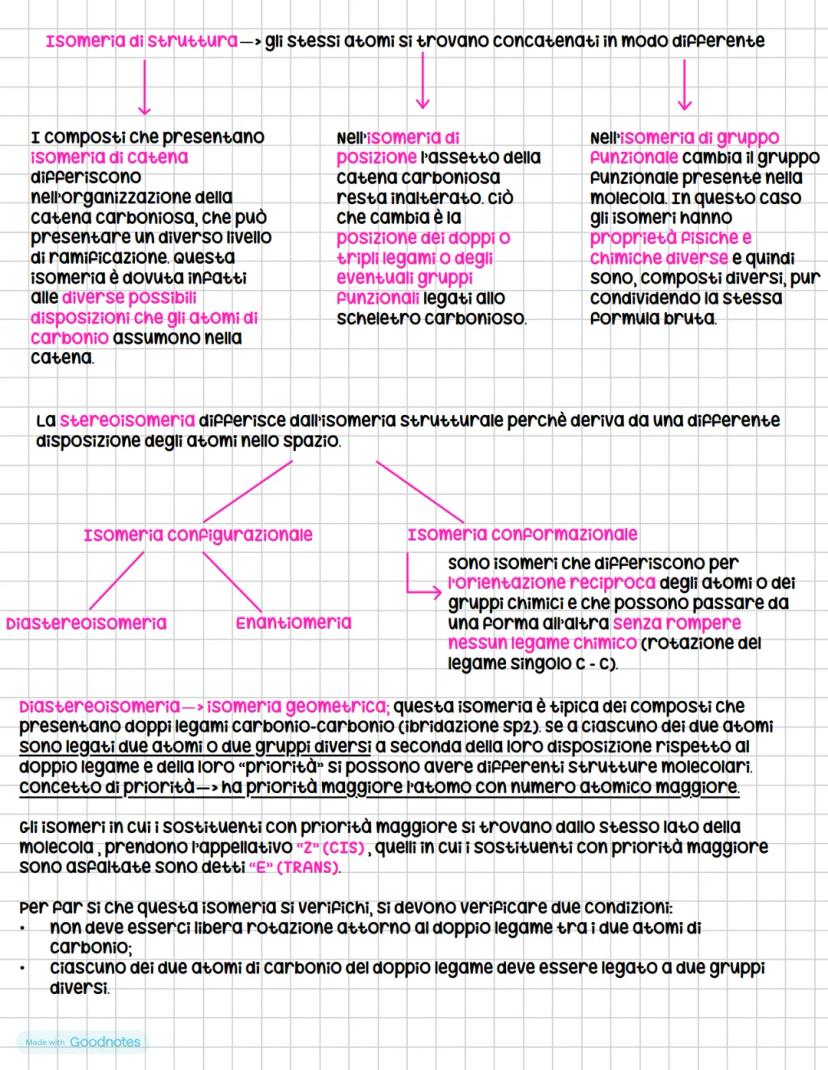 Isomeria di struttura —> gli stessi atomi si trovano concatenati in modo differente
I composti che presentano
isomeria di catena
differiscono
nell'organizzazione della
catena carboniosa, che può
presentare un diverso livello
di ramificazione. Questa
isomeria è dovuta infatti
alle diverse possibili
disposizioni che gli atomi di
carbonio assumono nella
catena.
Nell'isomeria di
posizione l'assetto della
catena carboniosa
resta inalterato. Ciò
che cambia è la
posizione dei doppi o
tripli legami o degli
eventuali gruppi
funzionali legati allo
scheletro carbonioso.
Nell'isomeria di gruppo
funzionale cambia il gruppo
funzionale presente nella
molecola. In questo caso
gli isomeri hanno
proprietà fisiche e
chimiche diverse e quindi
sono, composti diversi, pur
condividendo la stessa
formula bruta.
La stereoisomeria differisce dall'isomeria strutturale perchè deriva da una differente
disposizione degli atomi nello spazio.
Isomeria configurazionale
Isomeria conformazionale
sono isomeri che differiscono per
l'orientazione reciproca degli atomi o dei
gruppi chimici e che possono passare da
una forma all'altra senza rompere
nessun legame chimico (rotazione del
legame singolo C - C).
Diastereoisomeria
Enantiomeria
Diastereoisomeria —> isomeria geometrica; questa isomeria è tipica dei composti che
presentano doppi legami carbonio-carbonio (ibridazione sp2). Se a ciascuno dei due atomi
sono legati due atomi o due gruppi diversi a seconda della loro disposizione rispetto al
doppio legame e della loro “priorità” si possono avere differenti strutture molecolari.
Concetto di priorità —> ha priorità maggiore l'atomo con numero atomico maggiore.
Gli isomeri in cui i sostituenti con priorità maggiore si trovano dallo stesso lato della
molecola , prendono l'appellativo “Z” (CIS) , quelli in cui i sostituenti con priorità maggiore
sono asfaltate sono detti “E” (TRANS).
Per far si che questa isomeria si verifichi, si devono verificare due condizioni:
• non deve esserci libera rotazione attorno al doppio legame tra i due atomi di
carbonio;
• ciascuno dei due atomi di carbonio del doppio legame deve essere legato a due gruppi
diversi.
Made with Goodnotes